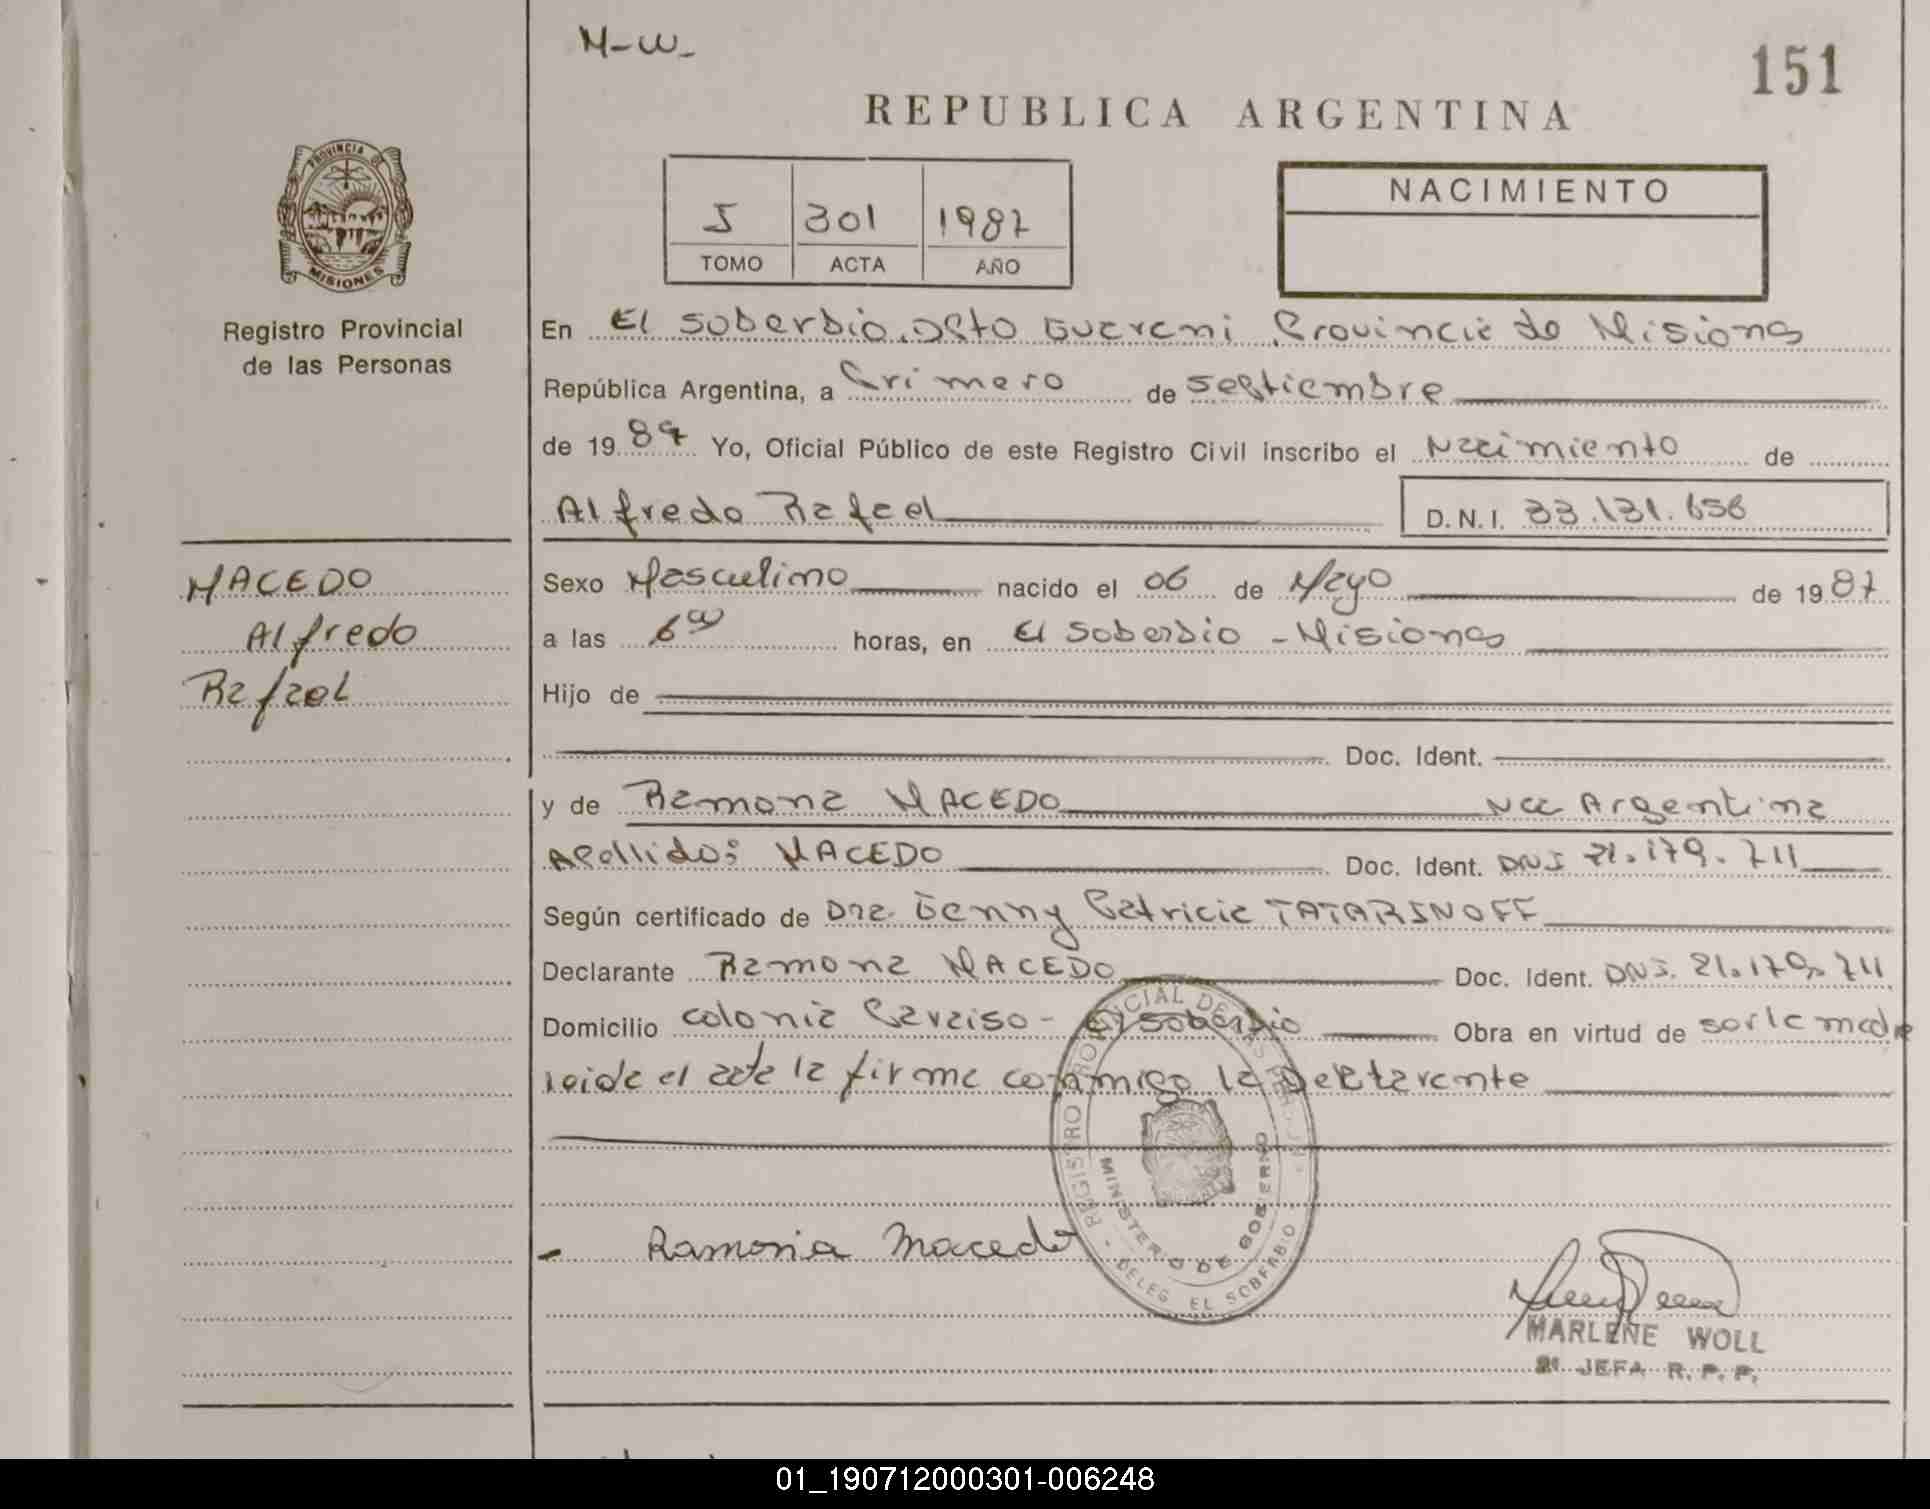 M-W-
151
REPUBLICA ARGENTINA
PROVINCIA DE
MISIONES
Registro Provincial
de las Personas
I 301 1987
TOMO ACTA AÑO
NACIMIENTO
En El Soberbio, Dpto Guarani, Provincia de Misiones
República Argentina, a Primero de septiembre
de 1987 Yo, Oficial Público de este Registro Civil inscribo el Nacimiento de
Alfredo Rafael D.N.I. 33.131.656
MACEDO
Alfredo
Rafael
Sexo Masculino nacido el 06 de Mayo de 1987
a las 6 00 horas, en El Soberbio - Misiones
Hijo de
Doc. Ident.
y de Ramona MACEDO Nac Argentina
Apellido: MACEDO Doc. Ident. DNI 21.179.711
Según certificado de Dra. Genny Patricia TATARINOFF
Declarante Ramona MACEDO Doc. Ident. DNI. 21.179.711
Domicilio colonia Paraiso - El Soberbio Obra en virtud de ser la madre
leida el acta la firma conmigo la Declarante
REGISTRO PROVINCIAL DE LAS PERSONAS
MINISTERIO DE GOBIERNO
- DELEG. EL SOBERBIO -
- Ramona Macedo
MARLENE WOLL
2ª JEFA R. P. P.
01_190712000301-006248